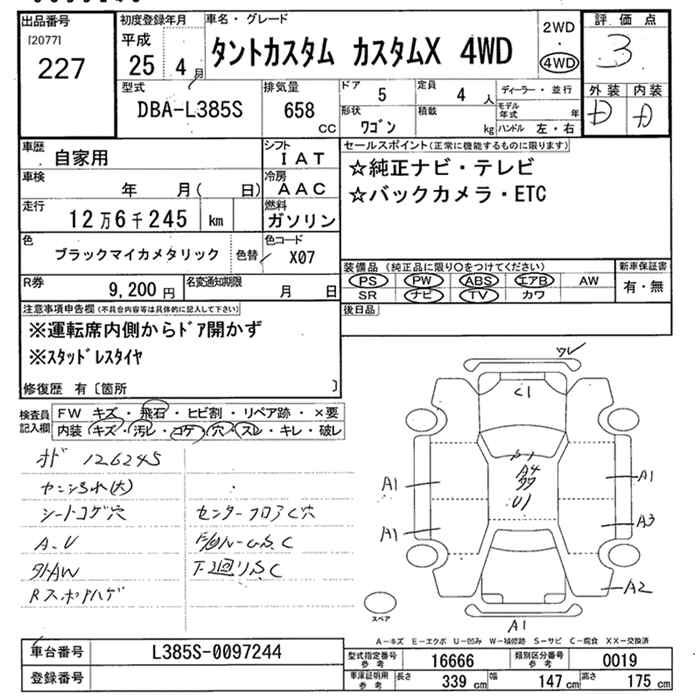 出品番号
[2077]
227
初度登録年月
平成
25年 4月
車名・グレード
タントカスタム カスタムX 4WD
2WD
4WD
評価点
3
外装 内装
D D
型式
DBA-L385S
排気量
658 CC
ドア
5
定員
4 人
形状
ワゴン
積載
kg
ディーラー・並行
モデル年式 年
ハンドル 左・右
車歴
自家用
シフト
IAT
車検
年 月( 日)
冷房
AAC
走行
12万6千245 km
燃料
ガソリン
色
ブラックマイカメタリック
色替
色コード
X07
R券
9,200 円
名変通知期限
月 日
セールスポイント(正常に機能するものに限ります)
☆純正ナビ・テレビ
☆バックカメラ・ETC
装備品(純正品に限り○をつけてください)
PS PW ABS エアB AW
SR ナビ TV カワ
新車保証書
有・無
後日品
注意事項申告欄(不具合内容等は具体的に記入して下さい)
※運転席内側からドア開かず
※スタッドレスタイヤ
修復歴 有〔箇所 〕
検査員記入欄
FW キズ・飛石・ヒビ割・リペア跡・×要
内装 キズ・汚レ・コゲ・穴・スレ・キレ・破レ
オド 126245
シートコゲ穴
センターフロアC穴
A.U
外AW
C1
A4
U1
A1
A1
A1
A3
A2
A1
スペア
A-キズ E-エクボ U-凹み W-補修跡 S-サビ C-腐食 XX-交換済
車台番号
L385S-0097244
登録番号
型式指定番号 参考
16666
類別区分番号 参考
0019
車庫証明用 参考
長さ 339 cm
幅 147 cm
高さ 175 cm